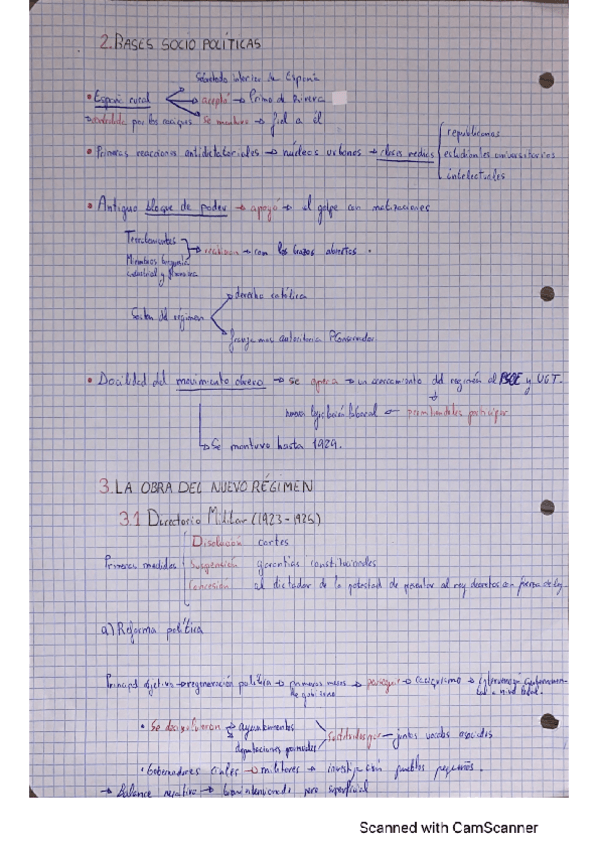 2. BASES SOCIO POLÍTICAS
• España rural → aceptó → Primo de Rivera
controlada por los caciques Se mantuvo → fiel a él
• Primeras reacciones antidictatoriales → núcleos urbanos → clases medias
republicanas
estudiantes universitarios
intelectuales
• Antiguo bloque de poder → apoyó → el golpe con matizaciones
Terratenientes
Miembros burguesía
industrial y financiera
con los brazos abiertos.
del régimen
derecha católica
autoritaria
• Docilidad del movimiento obrero → se aprecia → un acercamiento del régimen al PSOE y UGT.
nueva legislación laboral ← permitiéndoles participar
→ Se mantuvo hasta 1929.
3. LA OBRA DEL NUEVO RÉGIMEN
3.1 Directorio Militar (1923-1925)
Primeras medidas
Disolución cortes
Suspensión garantías constitucionales
Concesión al dictador de la potestad de al rey decretos con fuerza de ley
a) Reforma política
Principal objetivo → regeneración política → primeros meses → perseguir → caciquismo →
de gobierno
• Se disolvieron → ayuntamientos
diputaciones provinciales
Sustituidos por → juntas vocales asociados
• Gobernadores civiles → militares → pueblos pequeños.
→ Balance negativo → pero superficial
Scanned with CamScanner